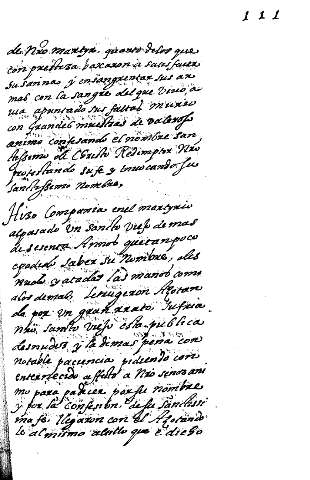 111
de Nro martyr, quanto delos que
con presteza baxaron a sacrificar
Susanna y ensangrentar sus ar
mas con la sangre del que vivo a
via apuntado sus faltas murio
con Grandes muestras de valeroso
animo confesando el nombre san
tissimo de Christo Redemptor Nro
protestando su fe y invocando su
sanctissimo nombre,
Hizo Compania en el martyrio
al pasado un sancto viejo de mas
de sesenta Annos que tan poco
e podido saber su Nombre,
nudo y atadas las manos como
a los demas, le
do por un gran rrato, sufria
Nro, sancto viejo esta publica
desnudez, y la demas pena con
notable paciencia pidiendo con
enternecido affecto a Nro señor ani
mo para padecer por su nombre
y por la confesion, de su sanctissi
ma fe, llegaron con el Açotando
le al mismo altillo que e dicho